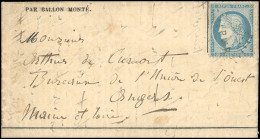 PAR BALLON MONTÉ.
Monsieur
Arthur de Cumont
Bureau de l'Union de l'Ouest
Angers
Maine et Loire